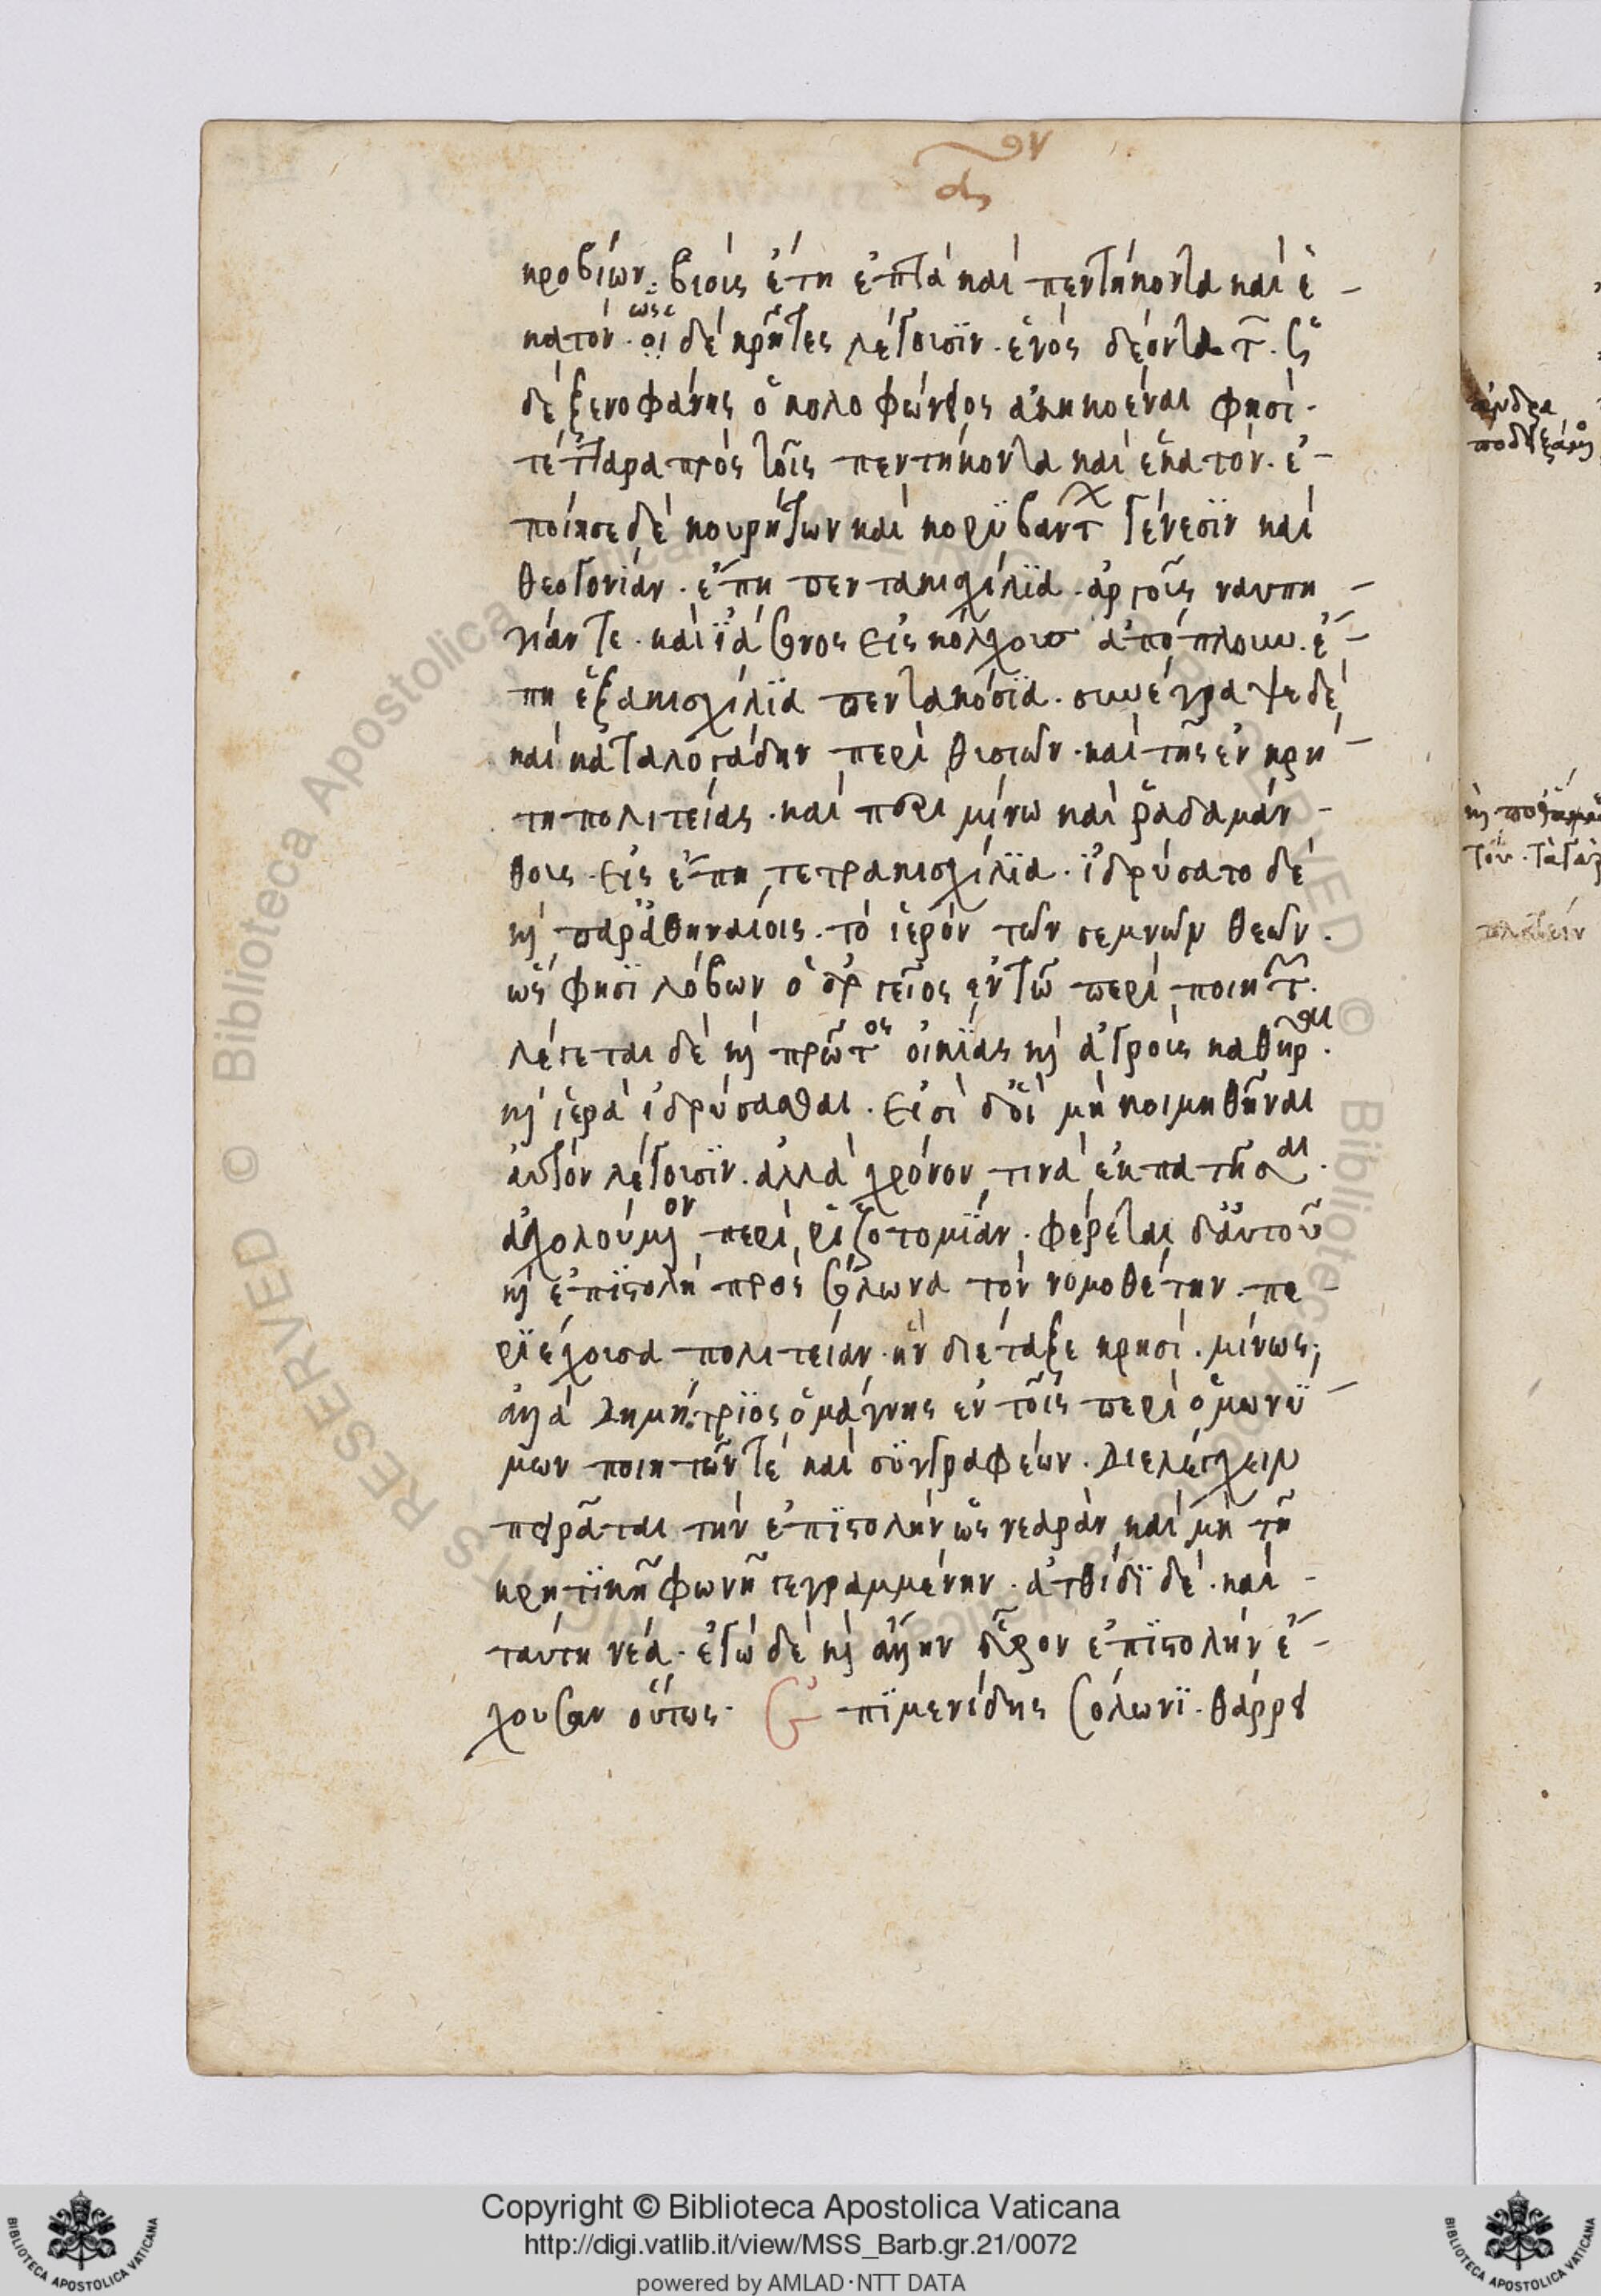 κροβίων· βιοὺς ἔτη ἑπτὰ καὶ πεντήκοντα καὶ ἑ-
κατόν· ὡς οἱ δὲ κρῆτες λέγουσϊν· ἑνὸς δέοντα τ̄· ὡς
δὲ ξενοφάνης ὁ κολοφώνιος ἀκηκοέναι φησί·
τέτταρα πρὸς τοῖς πεντήκοντα καὶ ἑκατόν· ἐ-
ποίησε δὲ κουρήτων καὶ κορϋβάντ γένεσϊν καὶ
θεογονΐαν· ἔπη πεντακισχίλϊα· ἀργοῦς ναυπη-
γίαν τε· καὶ ϊάσονος εἰς κόλχους ἀπόπλουν· ἔ-
πη ἑξακισχίλϊα πεντακόσϊα· συνέγραψε δὲ
καὶ καταλογάδην περὶ θυσιῶν· καὶ τῆς ἐν κρή-
τη πολιτείας· καὶ περὶ μίνω καὶ ῥαδαμάν-
θους εἰς ἔπη τετρακισχίλϊα· ϊδρύσατο δὲ
κ παρ ἀθηναίοις· τὸ ἱερὸν τῶν σεμνῶν θεῶν·
ὥς φησϊ λόβων ὁ ἀργεῖος ἐν τῶ περὶ ποιητ·
λέγεται δὲ κ πρῶτος οἰκΐας κ ἀγροὺς καθῆραι·
κ ἱερὰ ἱδρύσασθαι· εἰσὶ δ οἳ μὴ κοιμηθῆναι
αὐτὸν λέγουσϊν· ἀλλὰ χρόνον τινὰ ἐκπατῆσαι·
ἀχολούμενον περὶ ῥιζοτομΐαν· φέρεται δ αὐτοῦ
κ ἐπϊστολὴ πρὸς σόλωνα τὸν νομοθέτην· πε-
ρϊέχουσα πολιτείαν· ἣν διέταξε κρησὶ· μίνως;
ἀλλὰ Δημήτρϊος ὁ μάγνης ἐν τοῖς περὶ ὁμωνϋ-
μων ποιητῶν τὲ καὶ σϋγγραφέων· Διελέγχειν
πειρᾶται τὴν ἐπϊστολὴν ὡς νεαρὰν καὶ μὴ τῆ
κρητϊκῆ φωνῆ γεγραμμένην· ἀτθίδϊ δὲ· καὶ-
ταύτη νέα· ἐγὼ δὲ κ ἄλλην εὗρον ἐπϊστολὴν ἔ-
χουσαν οὕτως· Ἐπϊμενίδης σόλωνϊ· θάρρει
Copyright © Biblioteca Apostolica Vaticana
http://digi.vatlib.it/view/MSS_Barb.gr.21/0072
powered by AMLAD·NTT DATA